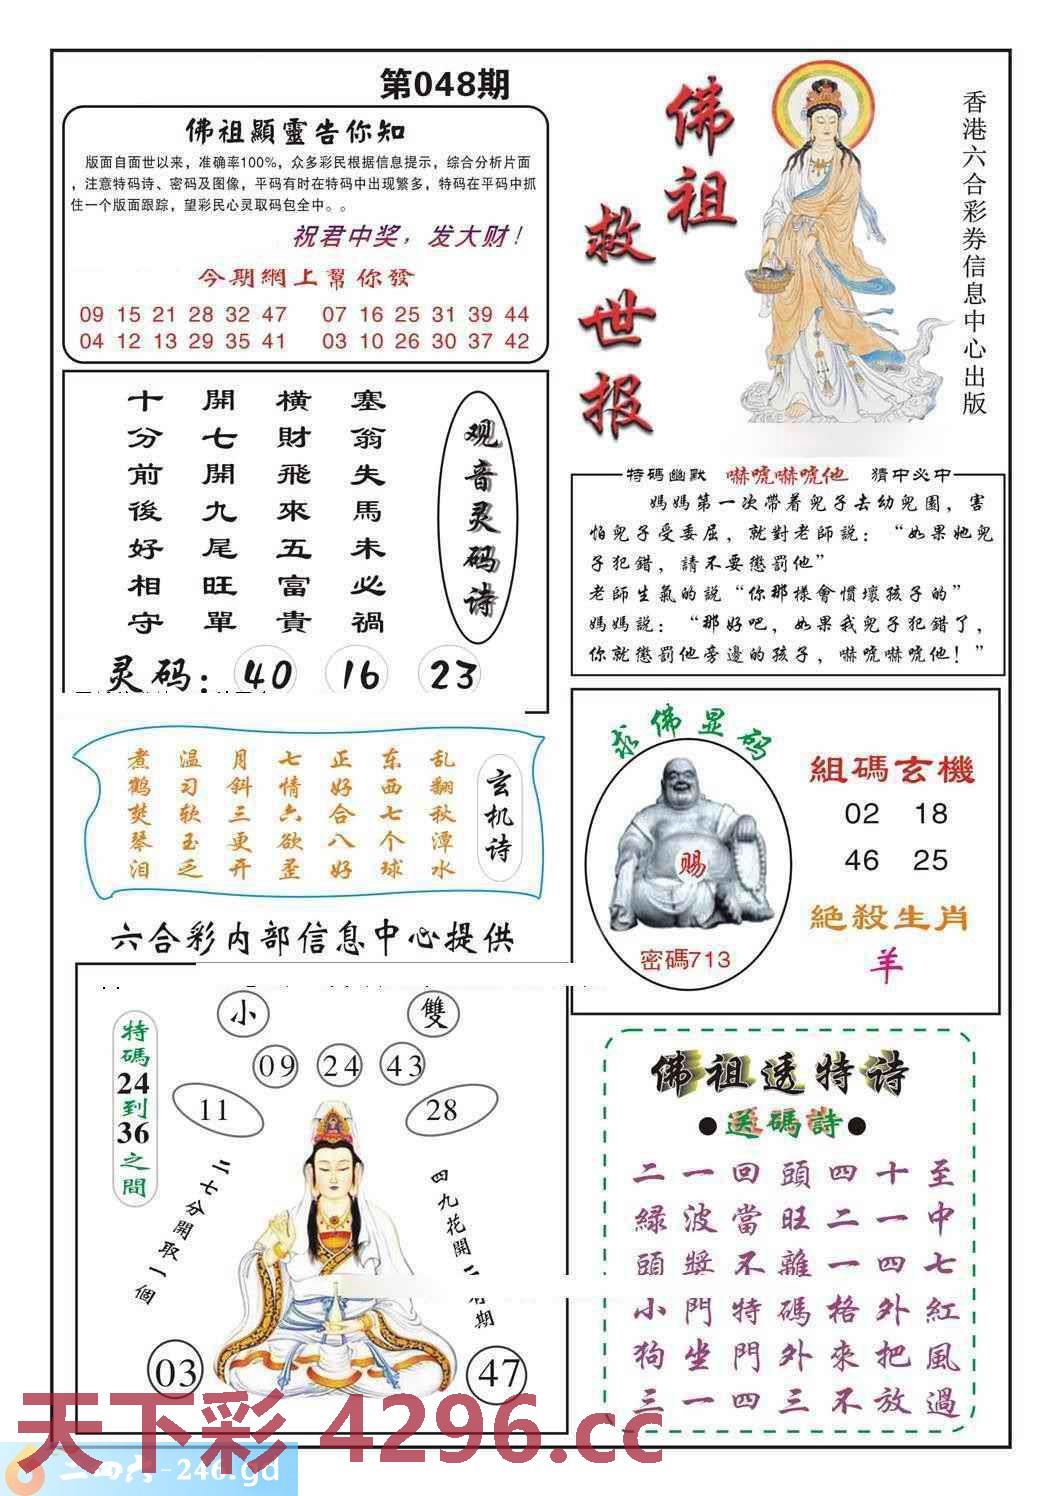 第048期
佛祖顯靈告你知
版面自面世以来，准确率100%，众多彩民根据信息提示，综合分析片面
，注意特码诗、密码及图像，平码有时在特码中出现繁多，特码在平码中抓
住一个版面跟踪，望彩民心灵取码包全中。。
祝君中奖，发大财！
今期網上幫你發
09 15 21 28 32 47 07 16 25 31 39 44
04 12 13 29 35 41 03 10 26 30 37 42
佛祖
救世报
香港六合彩券信息中心出版
观音灵码诗
塞翁失馬未必禍
橫財飛來五富貴
開七開九尾旺單
十分前後好相守
灵码：40 16 23
特碼幽默 嚇唬嚇唬他 猜中必中
媽媽第一次帶着兒子去幼兒園，害
怕兒子受委屈，就對老師説：“如果她兒
子犯錯，請不要懲罰他”
老師生氣的説“你那樣會慣壞孩子的”
媽媽説：“那好吧，如果我兒子犯錯了，
你就懲罰他旁邊的孩子，嚇唬嚇唬他！”
玄机诗
乱翻秋潭水
东西七个球
正好合八好
七情六欲歪
月斜三更开
温习软玉乏
煮鹤焚琴泪
求佛显码
赐
密碼713
組碼玄機
02 18
46 25
絕殺生肖
羊
六合彩内部信息中心提供
特碼24到36之間
小 雙
09 24 43
11 28
二七分開取一個
四九花開
期
03 47
佛祖透特诗
●送碼詩●
二一回頭四十至
緑波當旺二一中
頭獎不離一四七
小門特碼格外紅
狗坐門外來把風
三一四三不放過
天下彩 4296.cc
二四六-246.gd